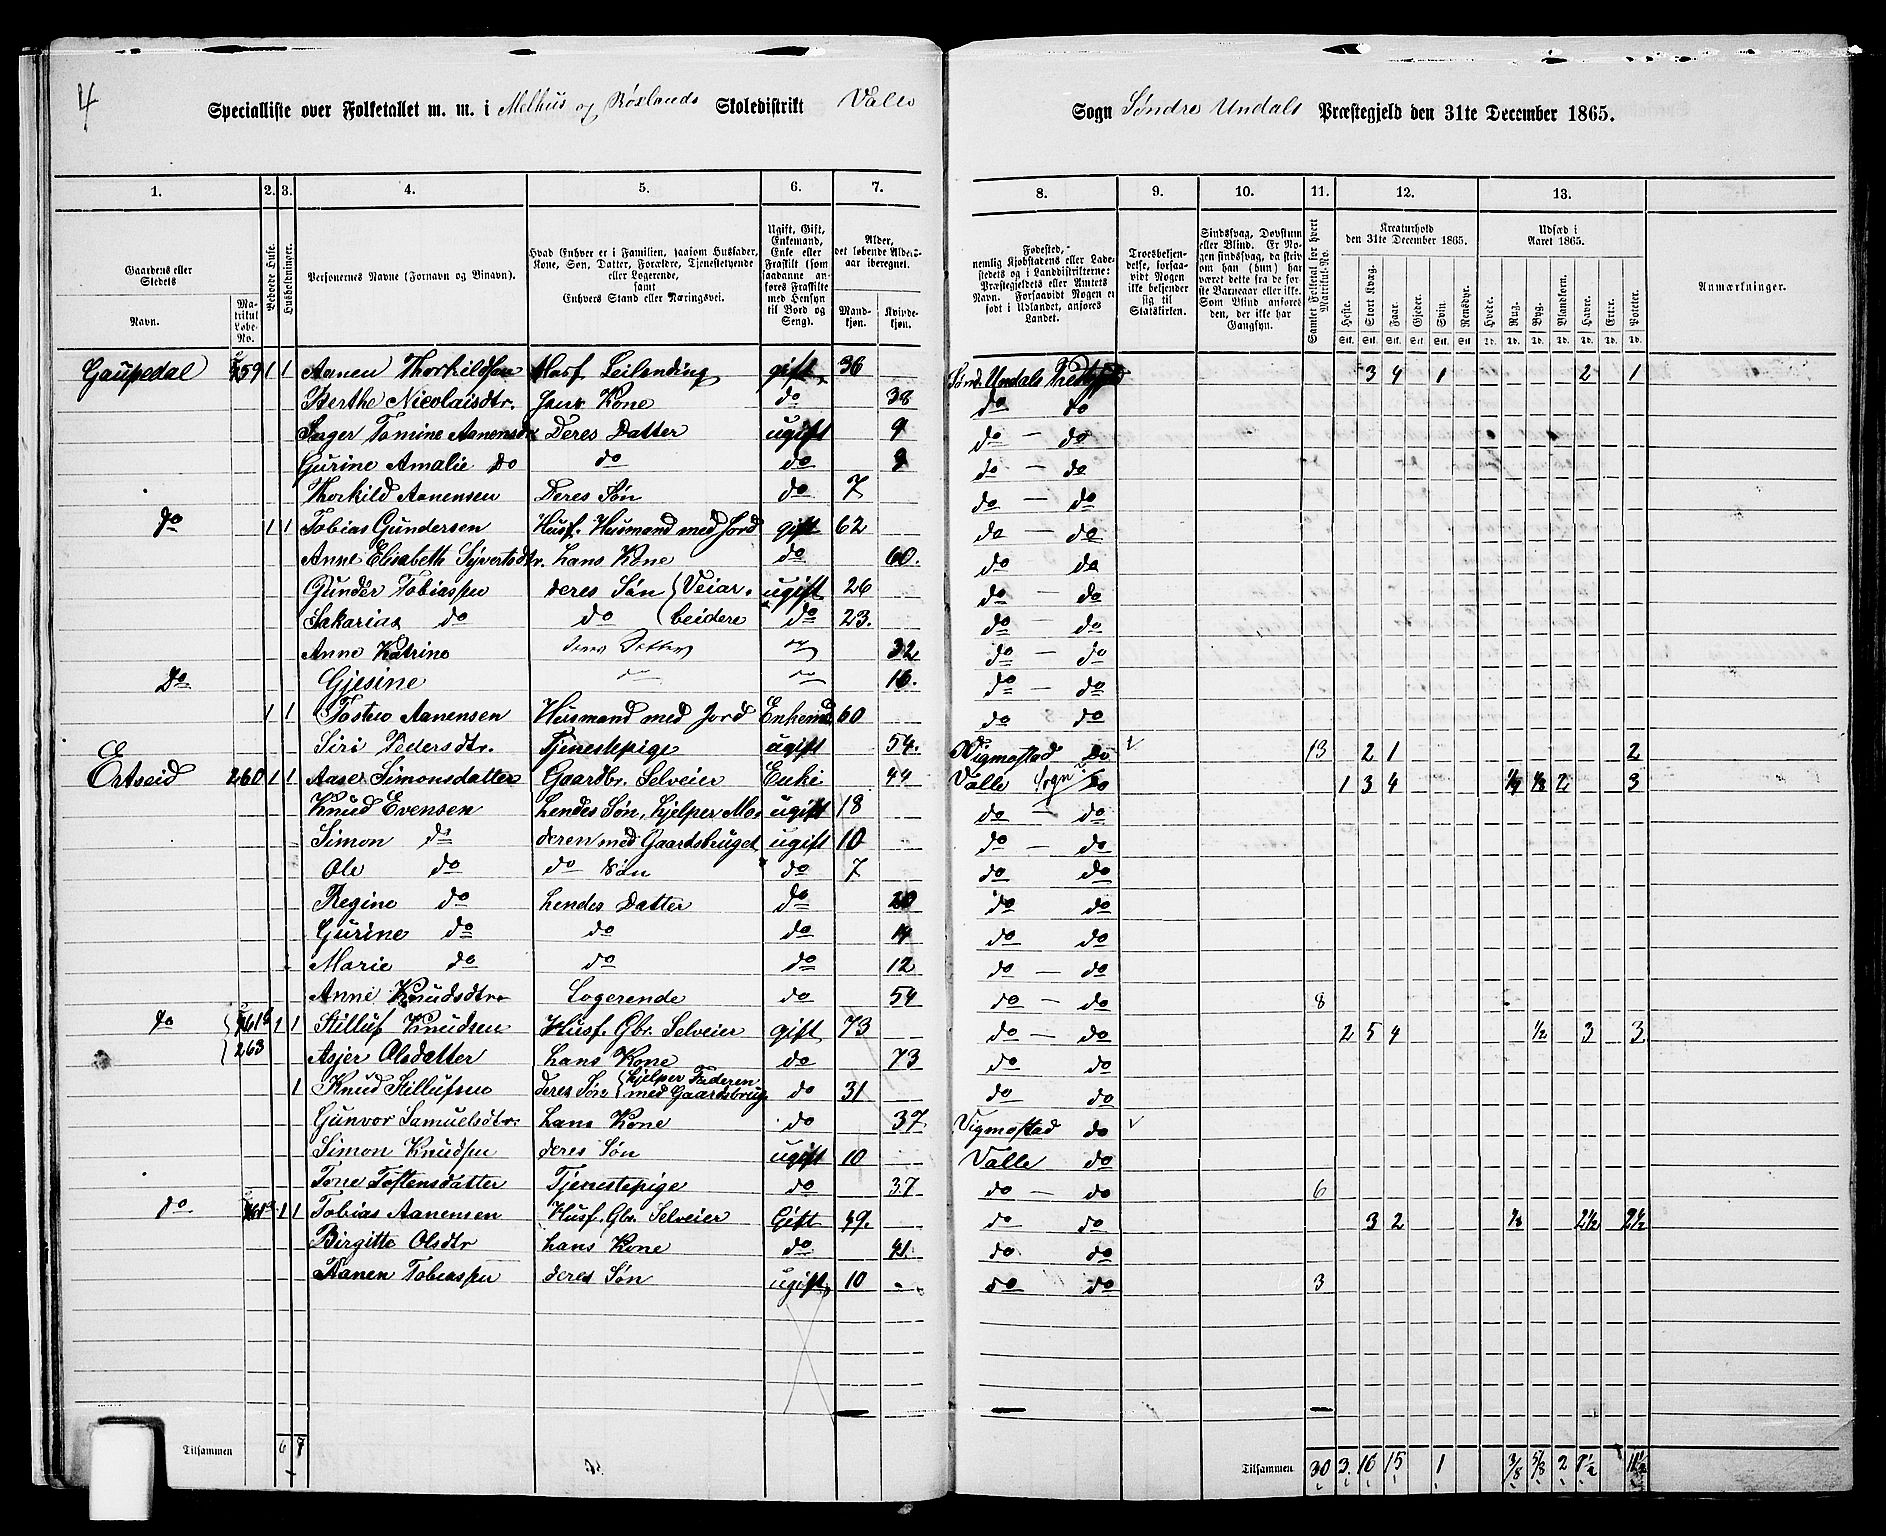 4
Specialliste over Folketallet m. m. i Melhus og Røslands Skoledistrikt Valle Sogn Søndre Undals Præstegjeld den 31te December 1865.
1. 2. 3. 4. 5. 6. 7. 8. 9. 10. 11. 12. 13.
Gaardens eller Stedets Navn.
Matrikul Løbe-No.
Beboede Huse.
Husholdninger.
Personernes Navne (Fornavn og Binavn).
Hvad Enhver er i Familien, saasom Husfader, Kone, Søn, Datter, Forældre, Tjenestetyende eller Logerende, samt Enhvers Stand eller Næringsvei.
Ugift, Gift, Enkemand, Enke eller Fraskilt (som saadanne anføres Fraskilte med Hensyn til Bord og Seng).
Alder, det løbende Alders-aar iberegnet.
Mandkjøn. Kvindekjøn.
Fødested, nemlig Kjøbstadens eller Ladestedets og i Landdistrikterne: Præstegjeldets eller Amtets Navn. Forsaavidt Nogen er født i Udlandet, anføres Landet.
Troesbekjendelse, forsaavidt Nogen ikke bekjender sig til Statskirken.
Sindssvag, Døvstum eller Blind. Er Nogen sindssvag, da skrives om han (hun) har været dette fra de første Barneaar eller ikke. Som Blind anføres den, der ikke har Gangsyn.
Samlet Folketal for hvert Matrikul-No.
Kreaturhold den 31te December 1865.
Heste. Stort Kvæg. Faar. Gjeder. Svin. Rensdyr.
Udsæd i Aaret 1865.
Hvede. Rug. Byg. Blandkorn. Havre. Erter. Poteter.
Anmærkninger.
Gaupedal 259 1 1 Aanen Thorkildsen Husf Leilending gift 36 Sønd. Undals Prestgjeld 3 4 1 2 1
Berthe Nicolaisdtr. hans Kone do 38 do do
Inger Tomine Aanensdtr Deres Datter ugift 9 do - do
Gurine Amalie do do do do - do
Thorkild Aanensen Deres Søn do 7 do - do
do 1 1 Tobias Gundersen Husf. Husmand med Jord gift 62 do - do
Anne Elisabeth Syvertsdtr. hans Kone do 60. do do
Gunder Tobiassen deres Søn (Veiar- ugift 26 do - do
Sakarias do do (beidere do 23. do - do
Anne Katrine deres Datter 32 do - do
Do Gjesine 16. do - do
1 1 Tosten Aanensen Husmand med Jord Enkemd. 60 do do
Siri Pedersdtr. Tjenestepige ugift 54. Vigmostad do 13 2 1 2
Ertseid 260 1 1 Aase Simonsdatter Gaardbr. Selveier Enke 44 Valle Sogn do 1 3 4 2 3
Knud Evensen hendes Søn, hjelper Mo- ugift 18 do - do
Simon do deren med Gaardsbruget ugift 10 do - do
Ole do do Søn do 7 do do
Regine do hendes Datter do 20 do do
Gurine do do do 14 do do
Marie do do do 12 do - do
Anne Knudsdtr Logerende do 54 do - do 8
do 261b 263 1 1 Stilluf Knudsen Husf. Gbr. Selveier gift 73 do - do 2 5 4 1/2 3 3
Asjer Olsdatter hans Kone do 73 do do
1 Knud Stillufsen deres Søn (hjelper Faderen med Gaardsbrug. do 31 do do
Gunvor Samuelsdtr. hans Kone do 37 Vigmostad do
Simon Knudsen deres Søn ugift 10 Valle do
Tone Tostensdatter Tjenestepige do 37 do - do 6
do 1 1 Tobias Aanensen Husf. Gbr. Selveier Gift 49. do do 3 2 1/8 2 1/2 2 1/2
Birgitte Olsdtr hans Kone do 41 do do
Aanen Tobiassen deres Søn ugift 10 do do 3
Tilsammen 6 7
Tilsammen 30 3. 16 15 1 3/8 5/8 2 7 1/2 11 1/2